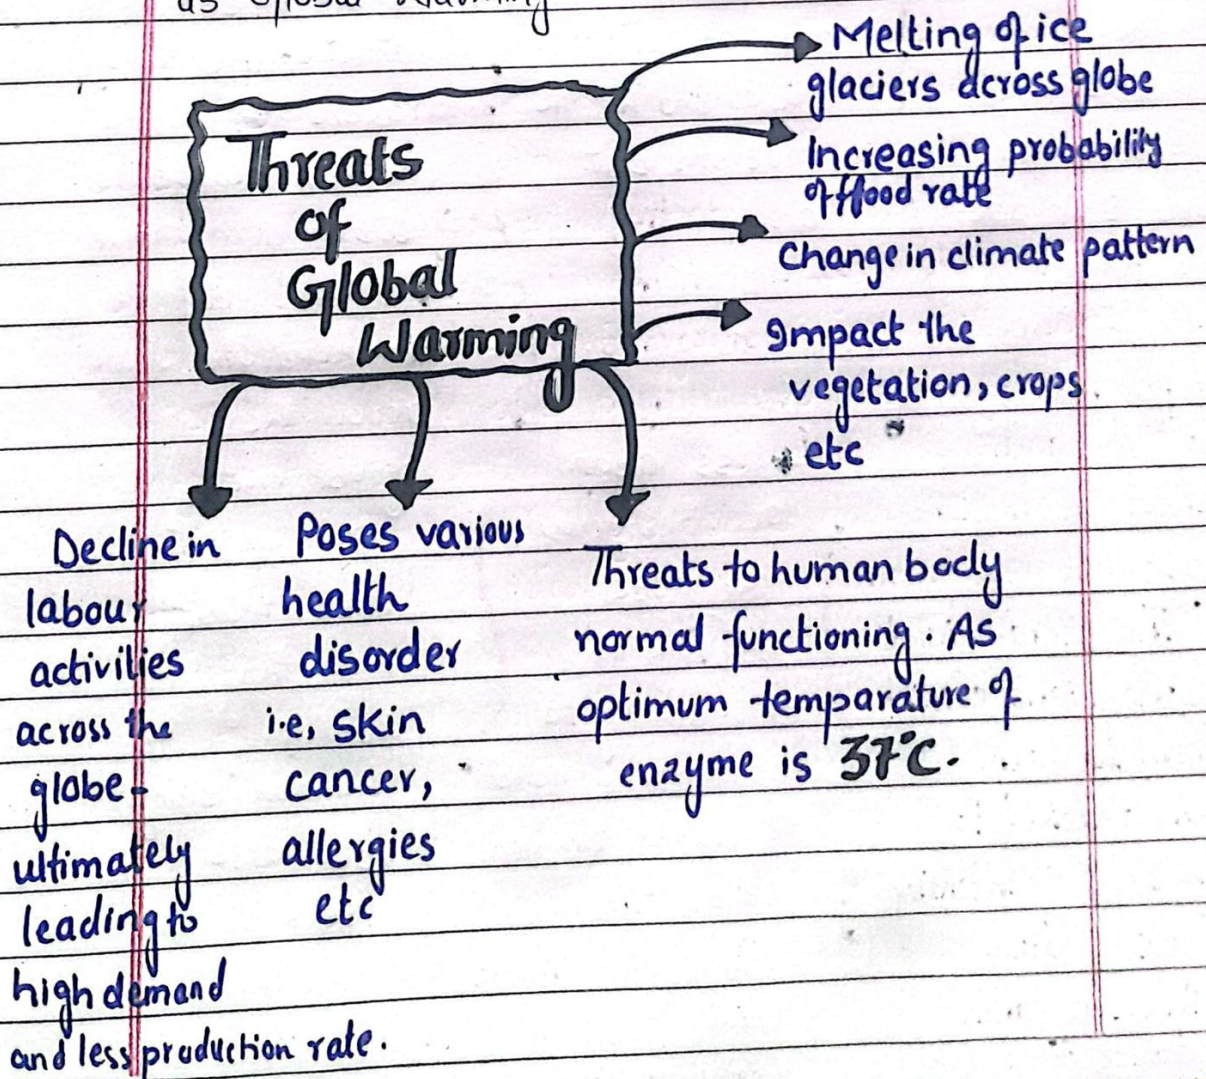 as Global Warming
Threats
of
Global
Warming
Melting of ice
glaciers across globe
Increasing probability
of flood rate
Change in climate pattern
Impact the
vegetation, crops
etc
Decline in
labour
activities
across the
globe -
ultimately
leading to
high demand
and less production rate.
Poses various
health
disorder
i.e, skin
cancer,
allergies
etc
Threats to human body
normal functioning. As
optimum temparature of
enzyme is 37°C.